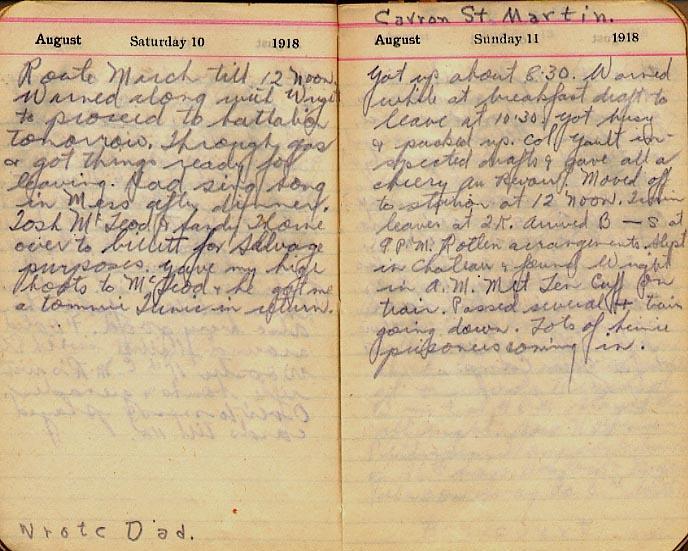 August Saturday 10 1918
Route March till 12 Noon.
Warned along with Wright
to proceed to battalion
tomorrow. Through gas
& got things ready for
leaving. Had sing song
in Mess after dinner.
Tosh McLeod & Sandy Horne
over to billett for Salvage
purposes. Gave my high
boots to McLeod & he got me
a tommie Tunic in return.
Wrote Dad.
Carron St. Martin.
August Sunday 11 1918
Got up about 8.30. Warned
while at breakfast draft to
leave at 10.30. Got busy
& packed up. Col Gault in-
spected drafts & gave all a
cheery Au Revoir. Moved off
to station at 12 Noon. Train
leaves at 2K. Arrived B — S at
9 P.M. Rotten arrangements. Slept
in Chateau & found Wright
in A.M. Met Len Cuff on
train. Passed several train
going down. Lots of heinie
prisoners coming in.